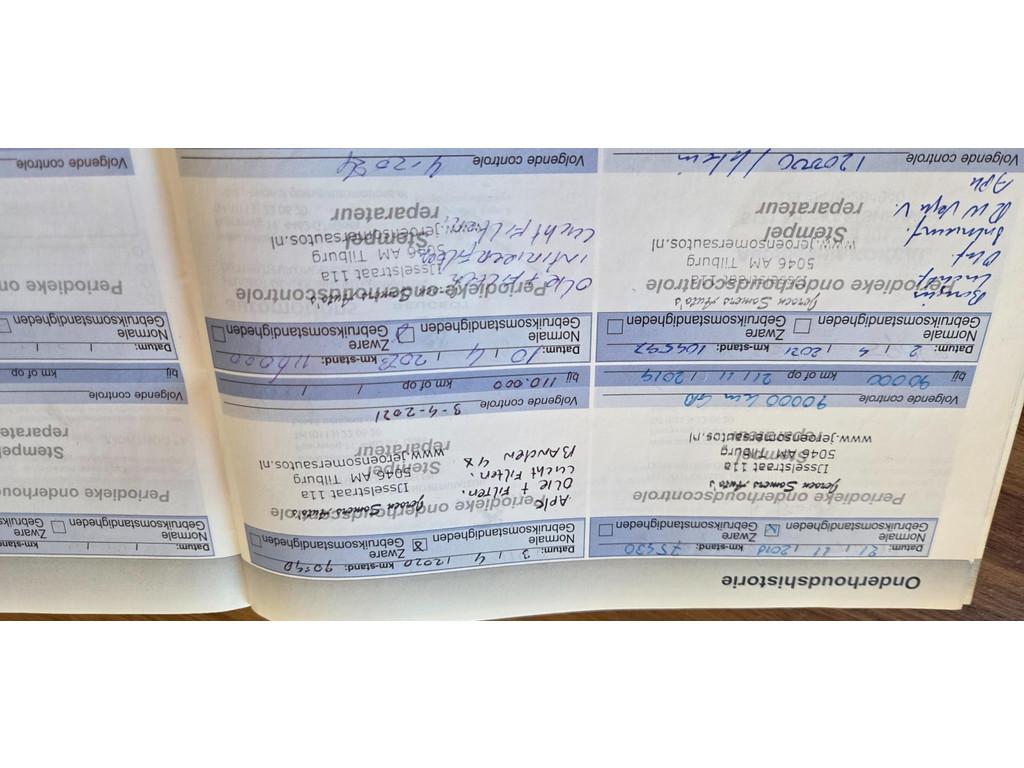 Onderhoudshistorie
Datum: 21 / 11 / 2018 km-stand: 75430
Normale Gebruiksomstandigheden
Zware Gebruiksomstandigheden
Periodieke onderhoudscontrole
Jeroen Somers Auto's
IJsselstraat 11a
5046 AM Tilburg
www.jeroensomersautos.nl
Stempel
reparateur
Volgende controle 90000 km
bij 90000 km of op 21 / 11 / 2019
Datum: 2 / 4 / 2021 km-stand: 104597
Normale Gebruiksomstandigheden
Zware Gebruiksomstandigheden
Periodieke onderhoudscontrole
Jeroen Somers Auto's
IJsselstraat 11a
5046 AM Tilburg
www.jeroensomersautos.nl
Stempel
reparateur
Interieurf.
Volgende controle 120000 / klein
Datum: 3 / 4 / 2020 km-stand: 90540
Normale Gebruiksomstandigheden
Zware Gebruiksomstandigheden
Periodieke onderhoudscontrole
APK
Olie + Filter.
Lucht Filter.
Banden 4x
Jeroen Somers Auto's
IJsselstraat 11a
5046 AM Tilburg
www.jeroensomersautos.nl
Stempel
reparateur
Volgende controle 3-4-2021
bij 110.000 km of op / /
Datum: 10 / 4 / 2023 km-stand: 116000
Normale Gebruiksomstandigheden
Zware Gebruiksomstandigheden
Periodieke onderhoudscontrole
Olie + Filter
Interieur Filter
Lucht Filter
Jeroen Somers Auto's
IJsselstraat 11a
5046 AM Tilburg
www.jeroensomersautos.nl
Stempel
reparateur
Volgende controle 4-2024
Datum: / / km-stand:
Normale Gebruiksomstandigheden
Zware
Periodieke onderhou
reparate
Volgende controle
bij km of op
Datum: / /
Normale Gebruiksomstandigheden
Periodieke on
Volgende controle